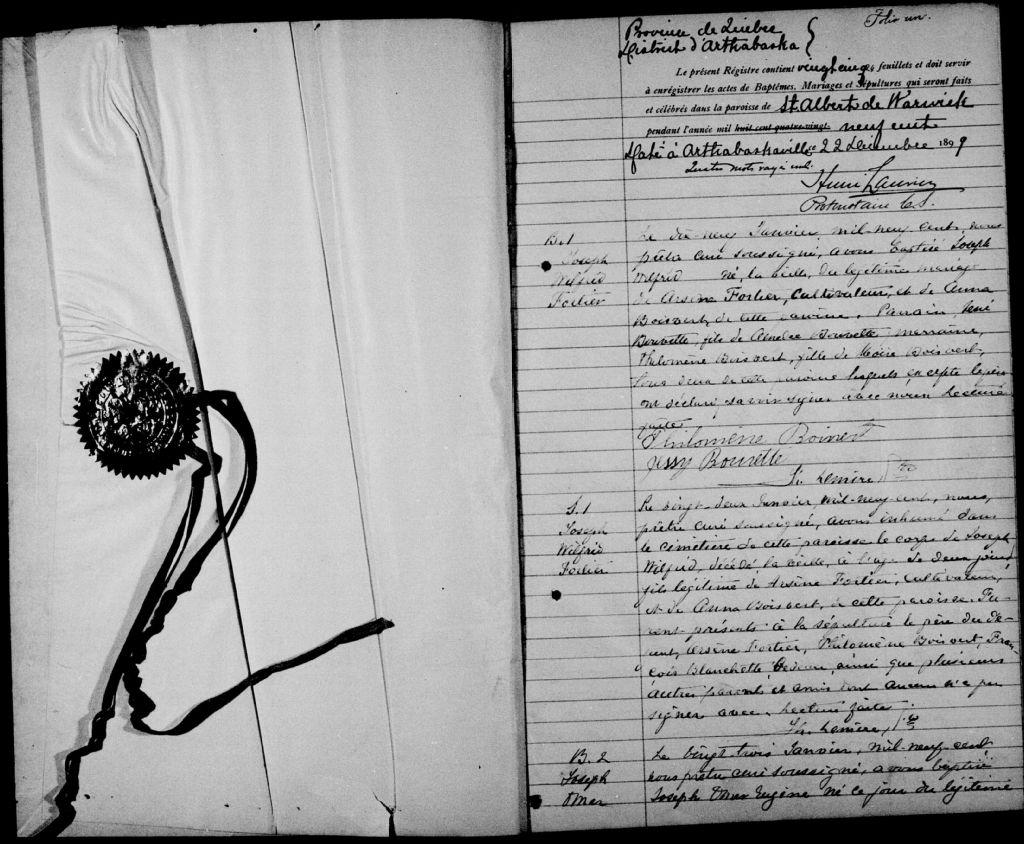 Folio un.
Province de Québec
District d'Arthabaska
Le présent Régistre contient vingt cinq feuillets et doit servir
à enrégistrer les actes de Baptêmes, Mariages et Sépultures qui seront faits
et célébrés dans la paroisse de St. Albert de Warwick
pendant l'année mil huit cent quatre-vingt neuf cent
Daté à Arthabaskaville ce 22 Décembre 1899
Quatre mots rayé nul.
Henri Laurier
Protonotaire C.S.
B.1
Joseph
Wilfrid
Fortier
Le dix-neuf Janvier, mil-neuf-cent, nous
prêtre curé soussigné, avons baptisé Joseph
Wilfrid né, la veille, du légitime mariage
de Arsène Fortier, cultivateur, et de Anna
Boisvert, de cette paroisse. Parrain,
Bourette, fils de Bourette, marraine,
Philomène Boisvert, fille de Boisvert,
tous deux de cette paroisse lesquels,
ont déclaré savoir signer avec nous. Lecture
faite
Philomène Boisvert
Jessy Bourette
Lemire, Ptre
S.1
Joseph
Wilfrid
Fortier
Le vingt-deux Janvier, mil-neuf-cent, nous,
prêtre curé soussigné, avons inhumé dans
le cimetière de cette paroisse le corps de Joseph
Wilfrid, décédé la veille, à l'âge de deux jours,
fils légitime de Arsène Fortier, cultivateur,
et de Anna Boisvert, de cette paroisse. Fu-
rent présents à la sépulture le père du dé-
funt, Arsène Fortier, Philomène Boisvert, Fran-
çois Blanchette, bedeau, ainsi que plusieurs
autres parents et amis dont aucun n'a pu
signer avec. Lecture faite.
Lemire,
B.2
Joseph
Omer
Le vingt-trois Janvier, mil-neuf-cent
nous prêtre curé soussigné, avons baptisé
Joseph Omer Eugène né ce jour du légitime